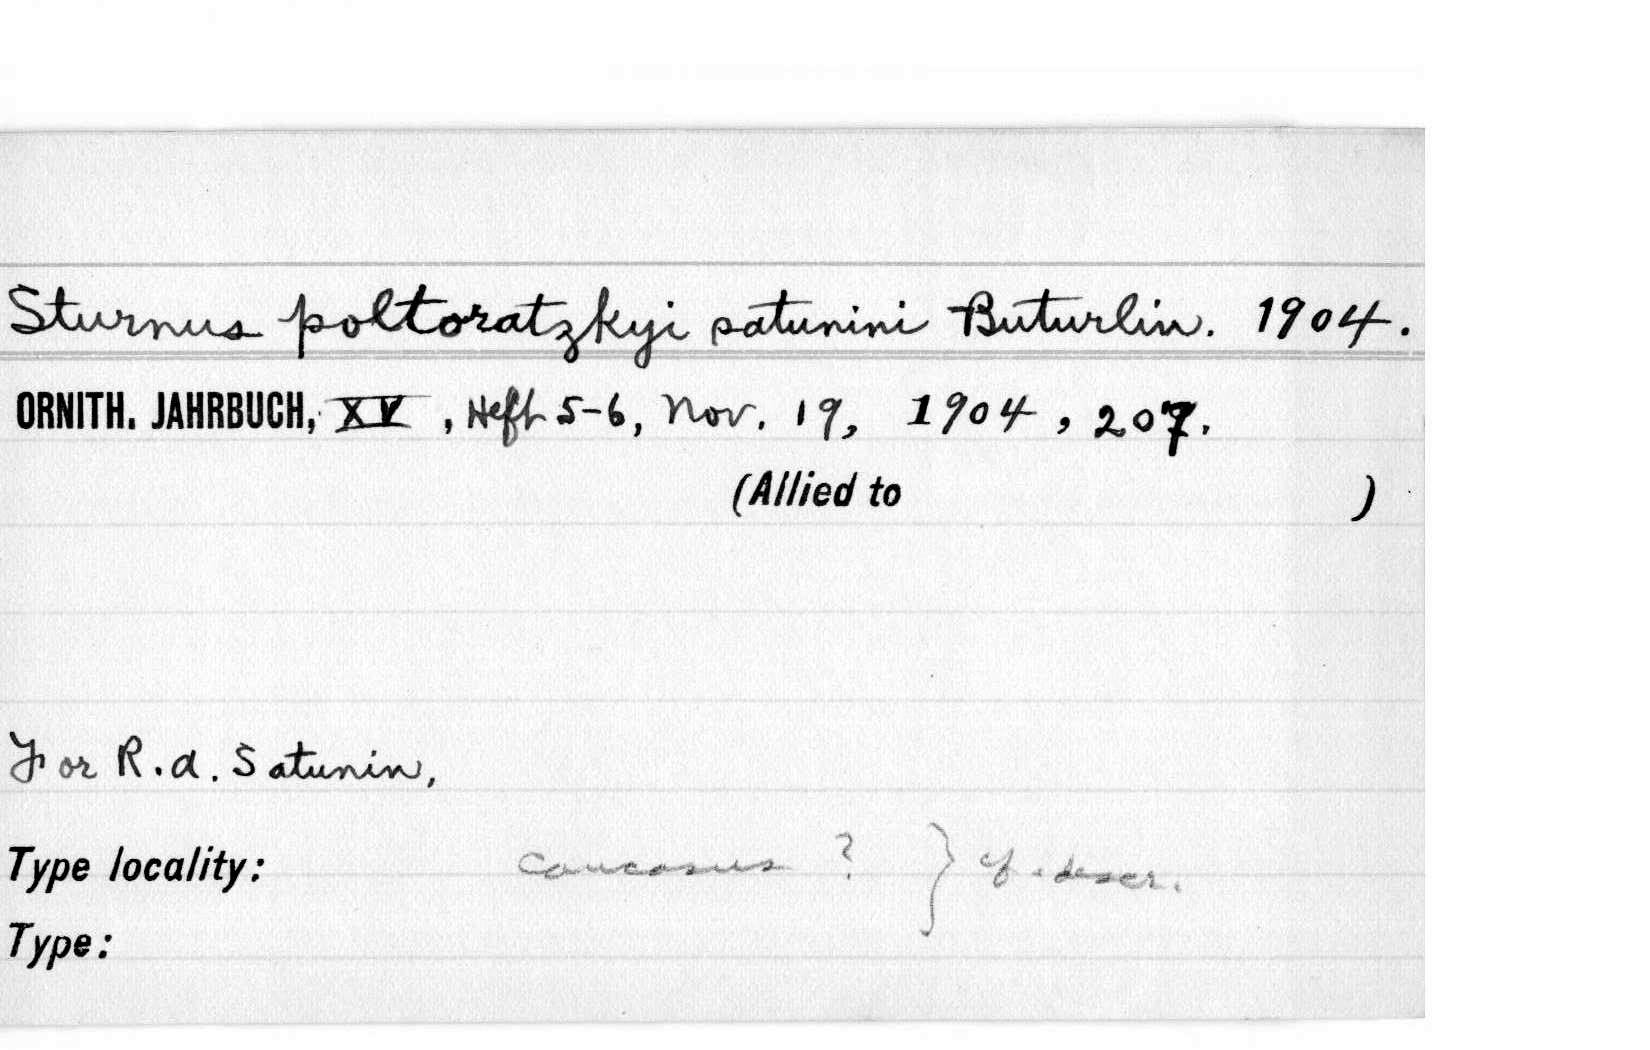 Sturnus poltoratzkyi satunini Buturlin. 1904.
ORNITH. JAHRBUCH, XV, Heft 5-6, Nov. 19, 1904, 207.
(Allied to )
For R.d. Satunin,
Type locality: Caucasus ? } cf. descr.
Type: